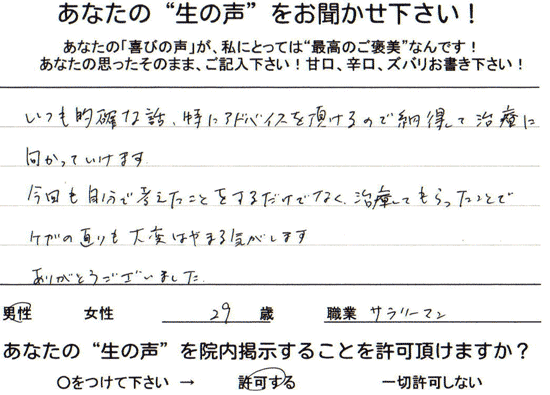 あなたの“生の声”をお聞かせ下さい！
あなたの「喜びの声」が、私にとっては“最高のご褒美”なんです！
あなたの思ったそのまま、ご記入下さい！甘口、辛口、ズバリお書き下さい！
いつも的確な話、特にアドバイスを頂けるので納得して治療に
向かっていけます
今回も自分で考えたことをするだけでなく、治療してもらったことで
ケガの直りも大変はやまる気がします
ありがとうございました.
男性 女性 29 歳 職業 サラリーマン
あなたの“生の声”を院内掲示することを許可頂けますか？
○をつけて下さい → 許可する 一切許可しない